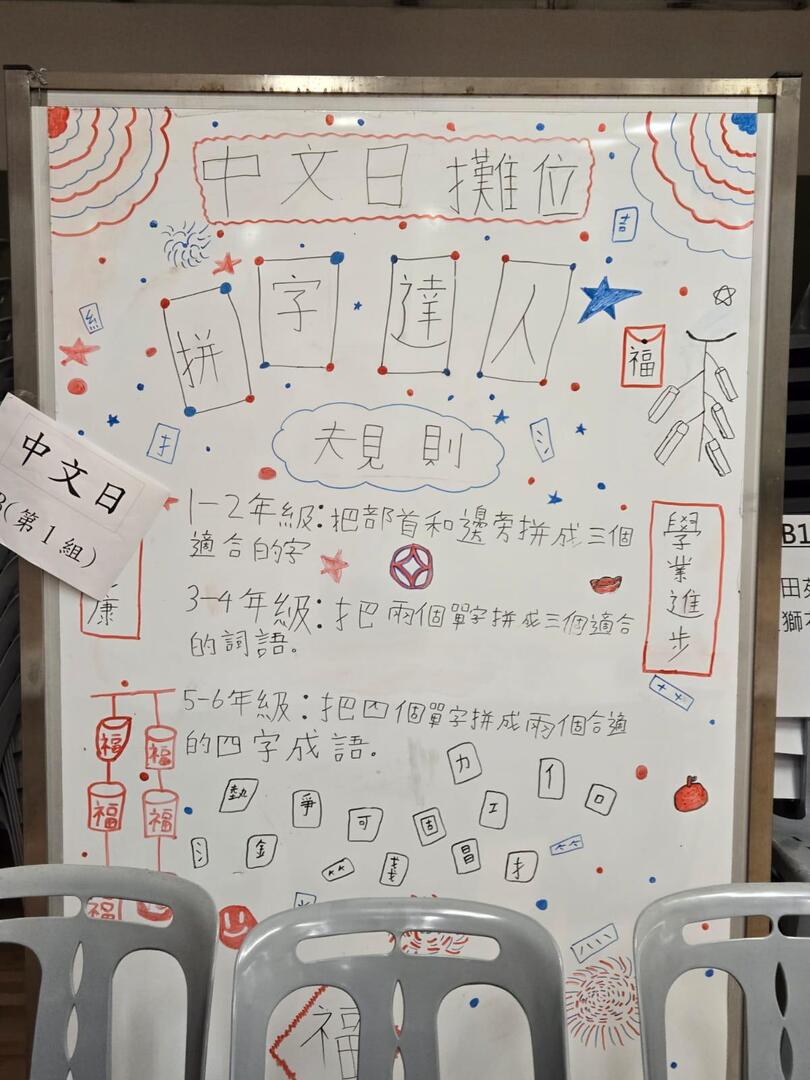 中文日 攤位
拼字達人
福
規則
中文日
(第1組)
1-2年級:把部首和邊旁拼成三個
適合的字
康
學業進步
B1
3-4年級:把兩個單字拼成三個適合
的詞語。
5-6年級:把四個單字拼成兩個合適
的四字成語。
福 福
福 福
力 亻
爭 可 固 工 口
氵 金 冒 扌
福
福